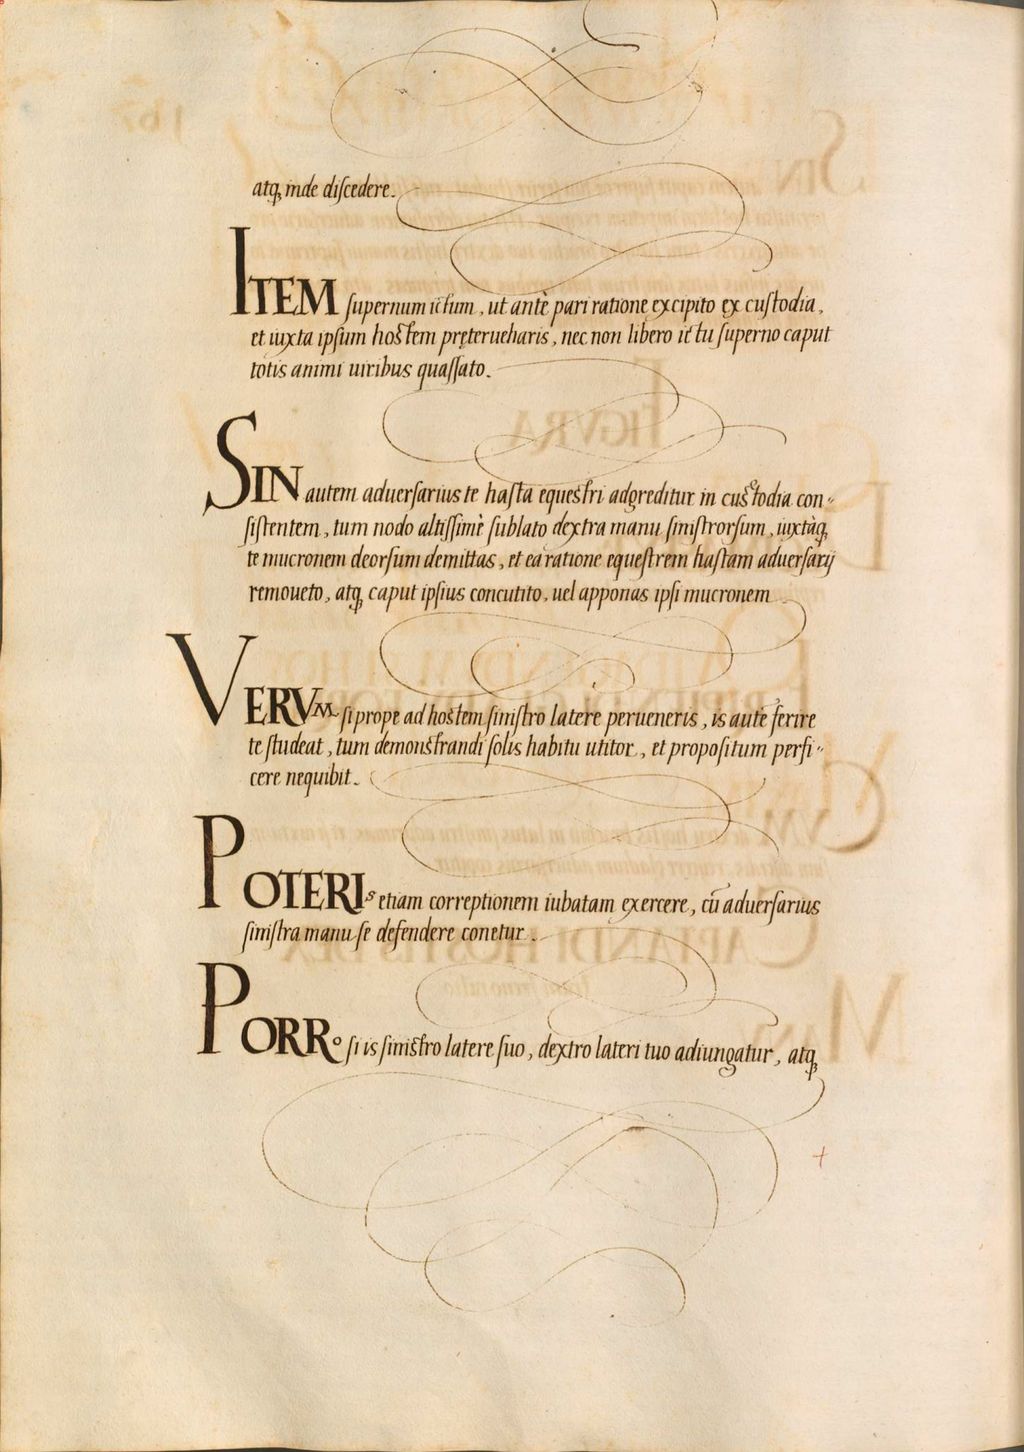 atq; inde discedere.
ITEM supernum ictum, ut antè pari ratione excipito ex custodia,
et iuxta ipsum hostem pręterueharis, nec non libero ictu superno caput
totis animi uiribus quassato.
SIN autem aduersarius te hasta equestri adgreditur in custodia con-
sistentem, tum nodo altissimè sublato dextra manu sinistrorsum, iuxtàq;
te mucronem deorsum demittas, et ea ratione equestrem hastam aduersarij
remoueto, atq; caput ipsius concutito, uel apponas ipsi mucronem
VERVM si prope ad hostem sinistro latere perueneris, is autē ferire
te studeat, tum demonstrandi solis habitu utitor, et propositum perfi-
cere nequibit.
POTERIs etiam correptionem iubatam exercere, cū aduersarius
sinistra manu se defendere conetur.
PORRo si is sinistro latere suo, dextro lateri tuo adiungatur, atq;